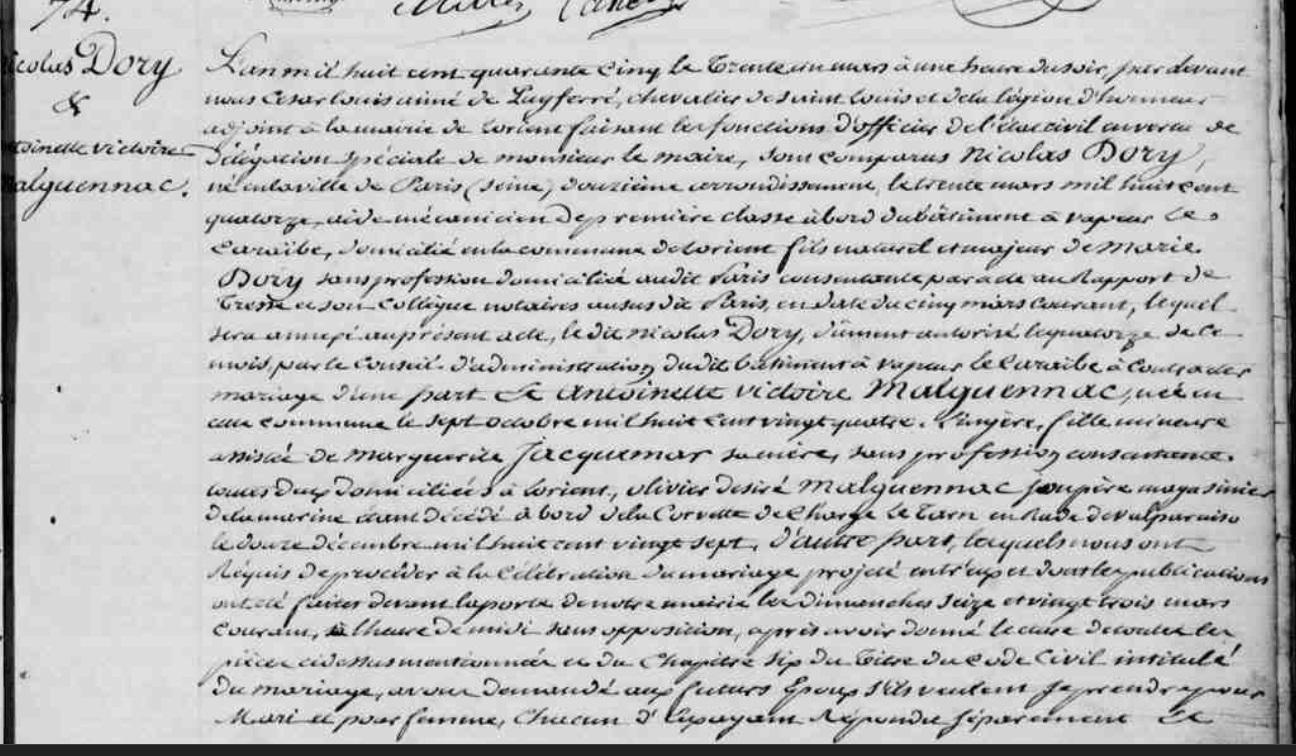 74.
Nicolas Dory
&
Antoinette victoire
Malguennac.
L'an mil huit cent quarante Cinq le Trente un mars à une heure du soir, par devant
nous Cesar Louis aimé de Puyferré, chevalier de saint Louis et de la légion d'honneur
adjoint à la mairie de Lorient faisant les fonctions d'officier de l'état civil en vertu de
Délégation spéciale de monsieur le maire, sont comparus Nicolas Dory,
né en la ville de Paris (seine) Douzième arrondissement, le trente mars mil huit cent
quatorze, aide mécanicien de première classe à bord du bâtiment à vapeur Le
Caraïbe, domicilié en la commune de Lorient fils naturel et majeur de Marie
Dory sans profession domiciliée audit Paris consentante par acte au Rapport de
Tresse et son Collègue notaires au sus dit Paris, en date du cinq mars Courant, lequel
sera annexé au présent acte, le dit Nicolas Dory, dûment autorisé le quatorze de ce
mois, par le Conseil d'administration dudit bâtiment à vapeur le Caraïbe à Contracter
mariage d'une part Et Antoinette victoire Malguennac, née en
cette commune le sept octobre mil huit cent vingt quatre, Lingère, fille mineure
assistée de Marguerite Jacquemar sa mère, sans profession consentante
toutes deux domiciliées à Lorient, olivier desiré Malguennac son père magasinier
de la marine étant décédé à bord de la Corvette de Charge Le Tarn en Rade de valparaiso
le douze décembre mil huit cent vingt sept, D'autre part, lesquels nous ont
Réquis de procéder à la Célébration du mariage projeté entr'eux et dont les publications
ont été faites devant la porte de notre mairie les Dimanches seize et vingt trois mars
Courant, à l'heure de midi sans opposition, après avoir donné lecture de toutes les
pièces ci dessus mentionnées et du Chapitre six du Titre du Code Civil intitulé
Du mariage, avons demandé aux futurs Epoux s'ils veulent se prendre pour
Mari et pour femme, Chacun d'Eux ayant Répondu séparément Et